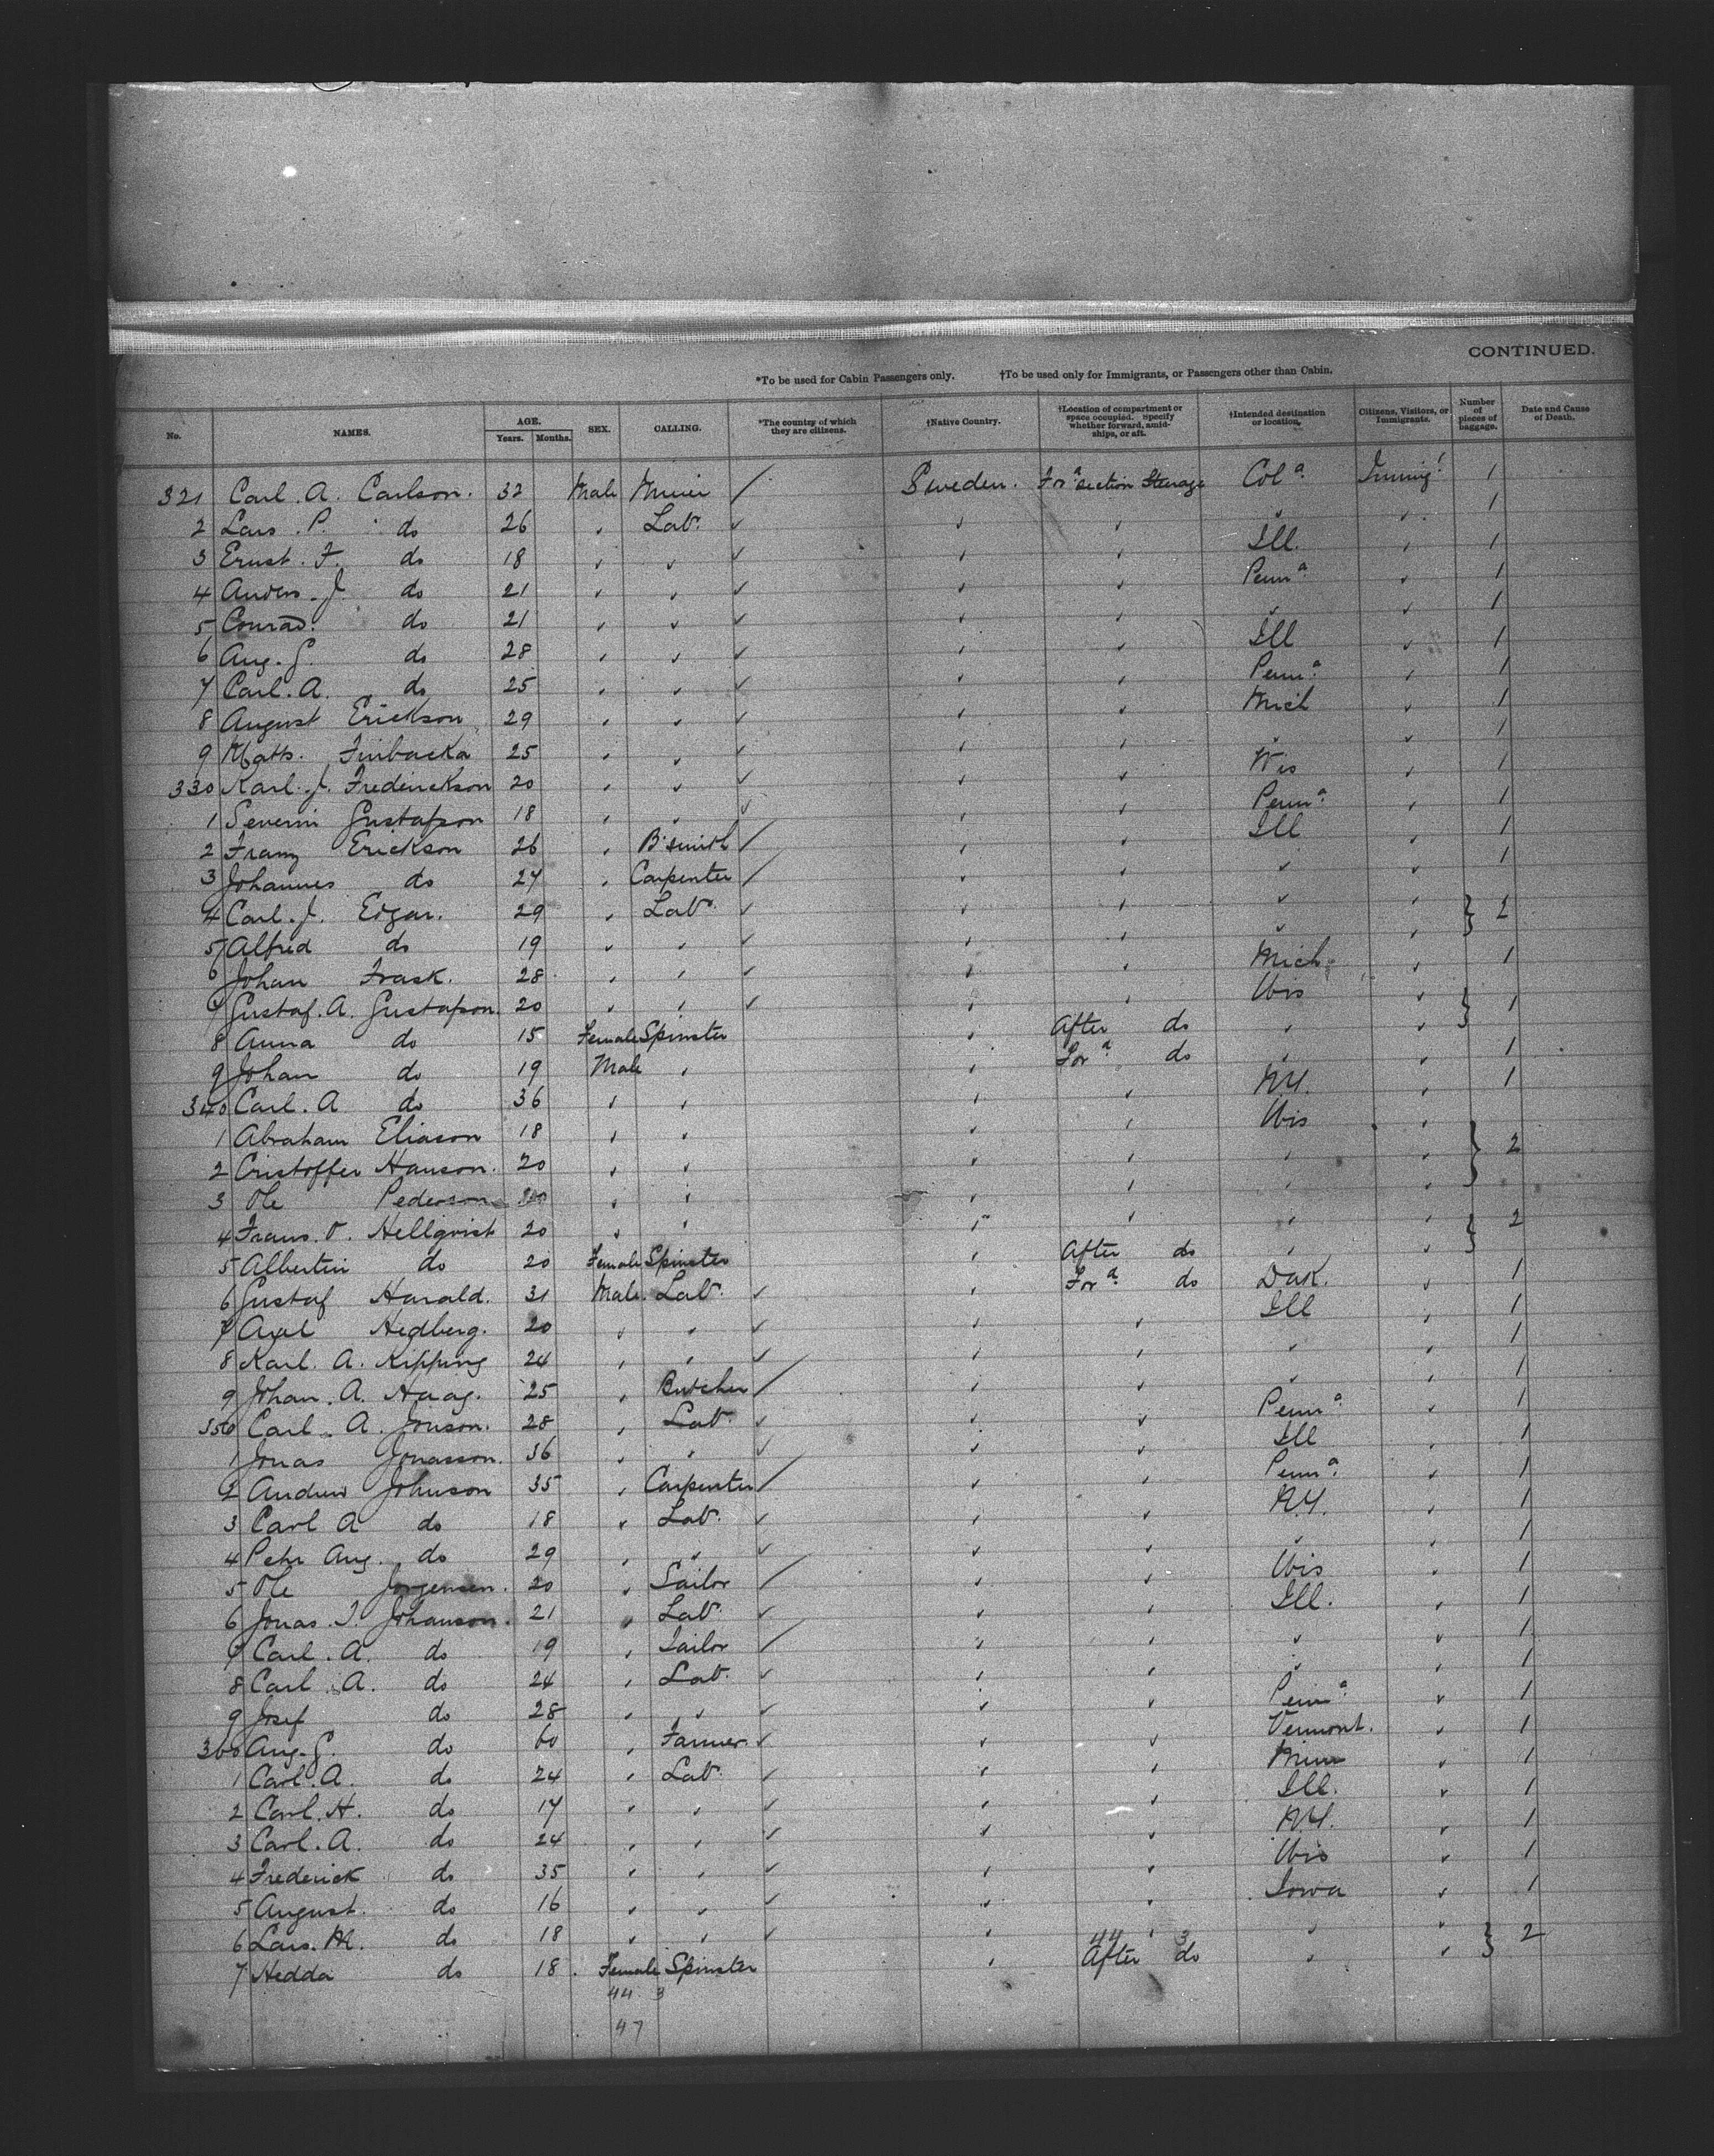 CONTINUED.
*To be used for Cabin Passengers only. †To be used only for Immigrants, or Passengers other than Cabin.
No. NAMES. AGE. Years. Months. SEX. CALLING. *The country of which they are citizens. †Native Country. †Location of compartment or space occupied. Specify whether forward, amidships, or aft. †Intended destination or location. Citizens, Visitors, or Immigrants. Number of pieces of baggage. Date and Cause of Death.
321 Carl. A. Carlson. 32 Male Miner / Sweden. Forᵈ section Steerage Colᵃ Immigᵗ 1
2 Lars. P. do 26 " Lab. ✓ " " " " 1
3 Ernst. F. do 18 " " ✓ " " Ill. " 1
4 Anders. J. do 21 " " ✓ " " Pennᵃ " 1
5 Conrad. do 21 " " ✓ " " " " 1
6 Aug. G. do 28 " " ✓ " " Ill " 1
7 Carl. A. do 25 " " ✓ " " Pennᵃ " 1
8 August Erickson 29 " " ✓ " " Mich " 1
9 Matts. Finbacka 25 " " ✓ " " " " 1
330 Karl. J. Frederickson 20 " " ✓ " " Wis " 1
1 Severin Gustafson 18 " " ✓ " " Pennᵃ " 1
2 Franz Erickson 26 " B'smith / " " Ill " 1
3 Johannes do 27 " Carpenter / " " " " 1
4 Carl. J. Edgar. 29 " Lab. ✓ " " " " } 2
5 Alfred do 19 " " ✓ " " " "
6 Johan Frask. 28 " " ✓ " " Mich " 1
7 Gustaf. A. Gustafson. 20 " " ✓ " " Wis " } 1
8 Anna do 15 Female Spinster " After do " "
9 Johan do 19 Male " " Forᵈ do " " 1
340 Carl. A do 36 " " " " N.Y. " 1
1 Abraham Eliason 18 " " " " Wis " } 2
2 Cristoffer Hanson. 20 " " " " " "
3 Ole Pederson 20 " " " " " "
4 Frans. O. Hellqvist 20 " " " " " " } 2
5 Albertin do 20 Female Spinster " After do " "
6 Gustaf Harald. 31 Male. Lab. ✓ " Forᵈ do Dak. " 1
7 Axel Hedberg. 20 " " ✓ " " Ill " 1
8 Karl. A. Kipping 24 " " ✓ " " " " 1
9 Johan. A. Haag. 25 " Butcher / " " " " 1
350 Carl. A. Jonson. 28 " Lab. ✓ " " Pennᵃ " 1
1 Jonas Jonasson. 36 " " ✓ " " Ill " 1
2 Andrew Johnson 35 " Carpenter / " " Pennᵃ " 1
3 Carl A do 18 " Lab. ✓ " " N.Y. " 1
4 Pehr Aug. do 29 " " ✓ " " " " 1
5 Ole Jorgensen. 20 " Sailor / " " Wis " 1
6 Jonas. J. Johanson. 21 " Lab. ✓ " " Ill. " 1
7 Carl. A. do 19 " Tailor / " " " " 1
8 Carl. A. do 24 " Lab. ✓ " " " " 1
9 Josef do 28 " " ✓ " " Pennᵃ " 1
360 Aug. G. do 60 " Farmer ✓ " " Vermont. " 1
1 Carl. A. do 24 " Lab. ✓ " " Minn " 1
2 Carl. H. do 17 " " ✓ " " Ill. " 1
3 Carl. A. do 24 " " ✓ " " N.Y. " 1
4 Frederick do 35 " " ✓ " " Wis " 1
5 August. do 16 " " ✓ " " Iowa " 1
6 Lars. M. do 18 " " ✓ " " " " } 2
44 3
7 Hedda do 18. Female Spinster " After do " "
44 3
47